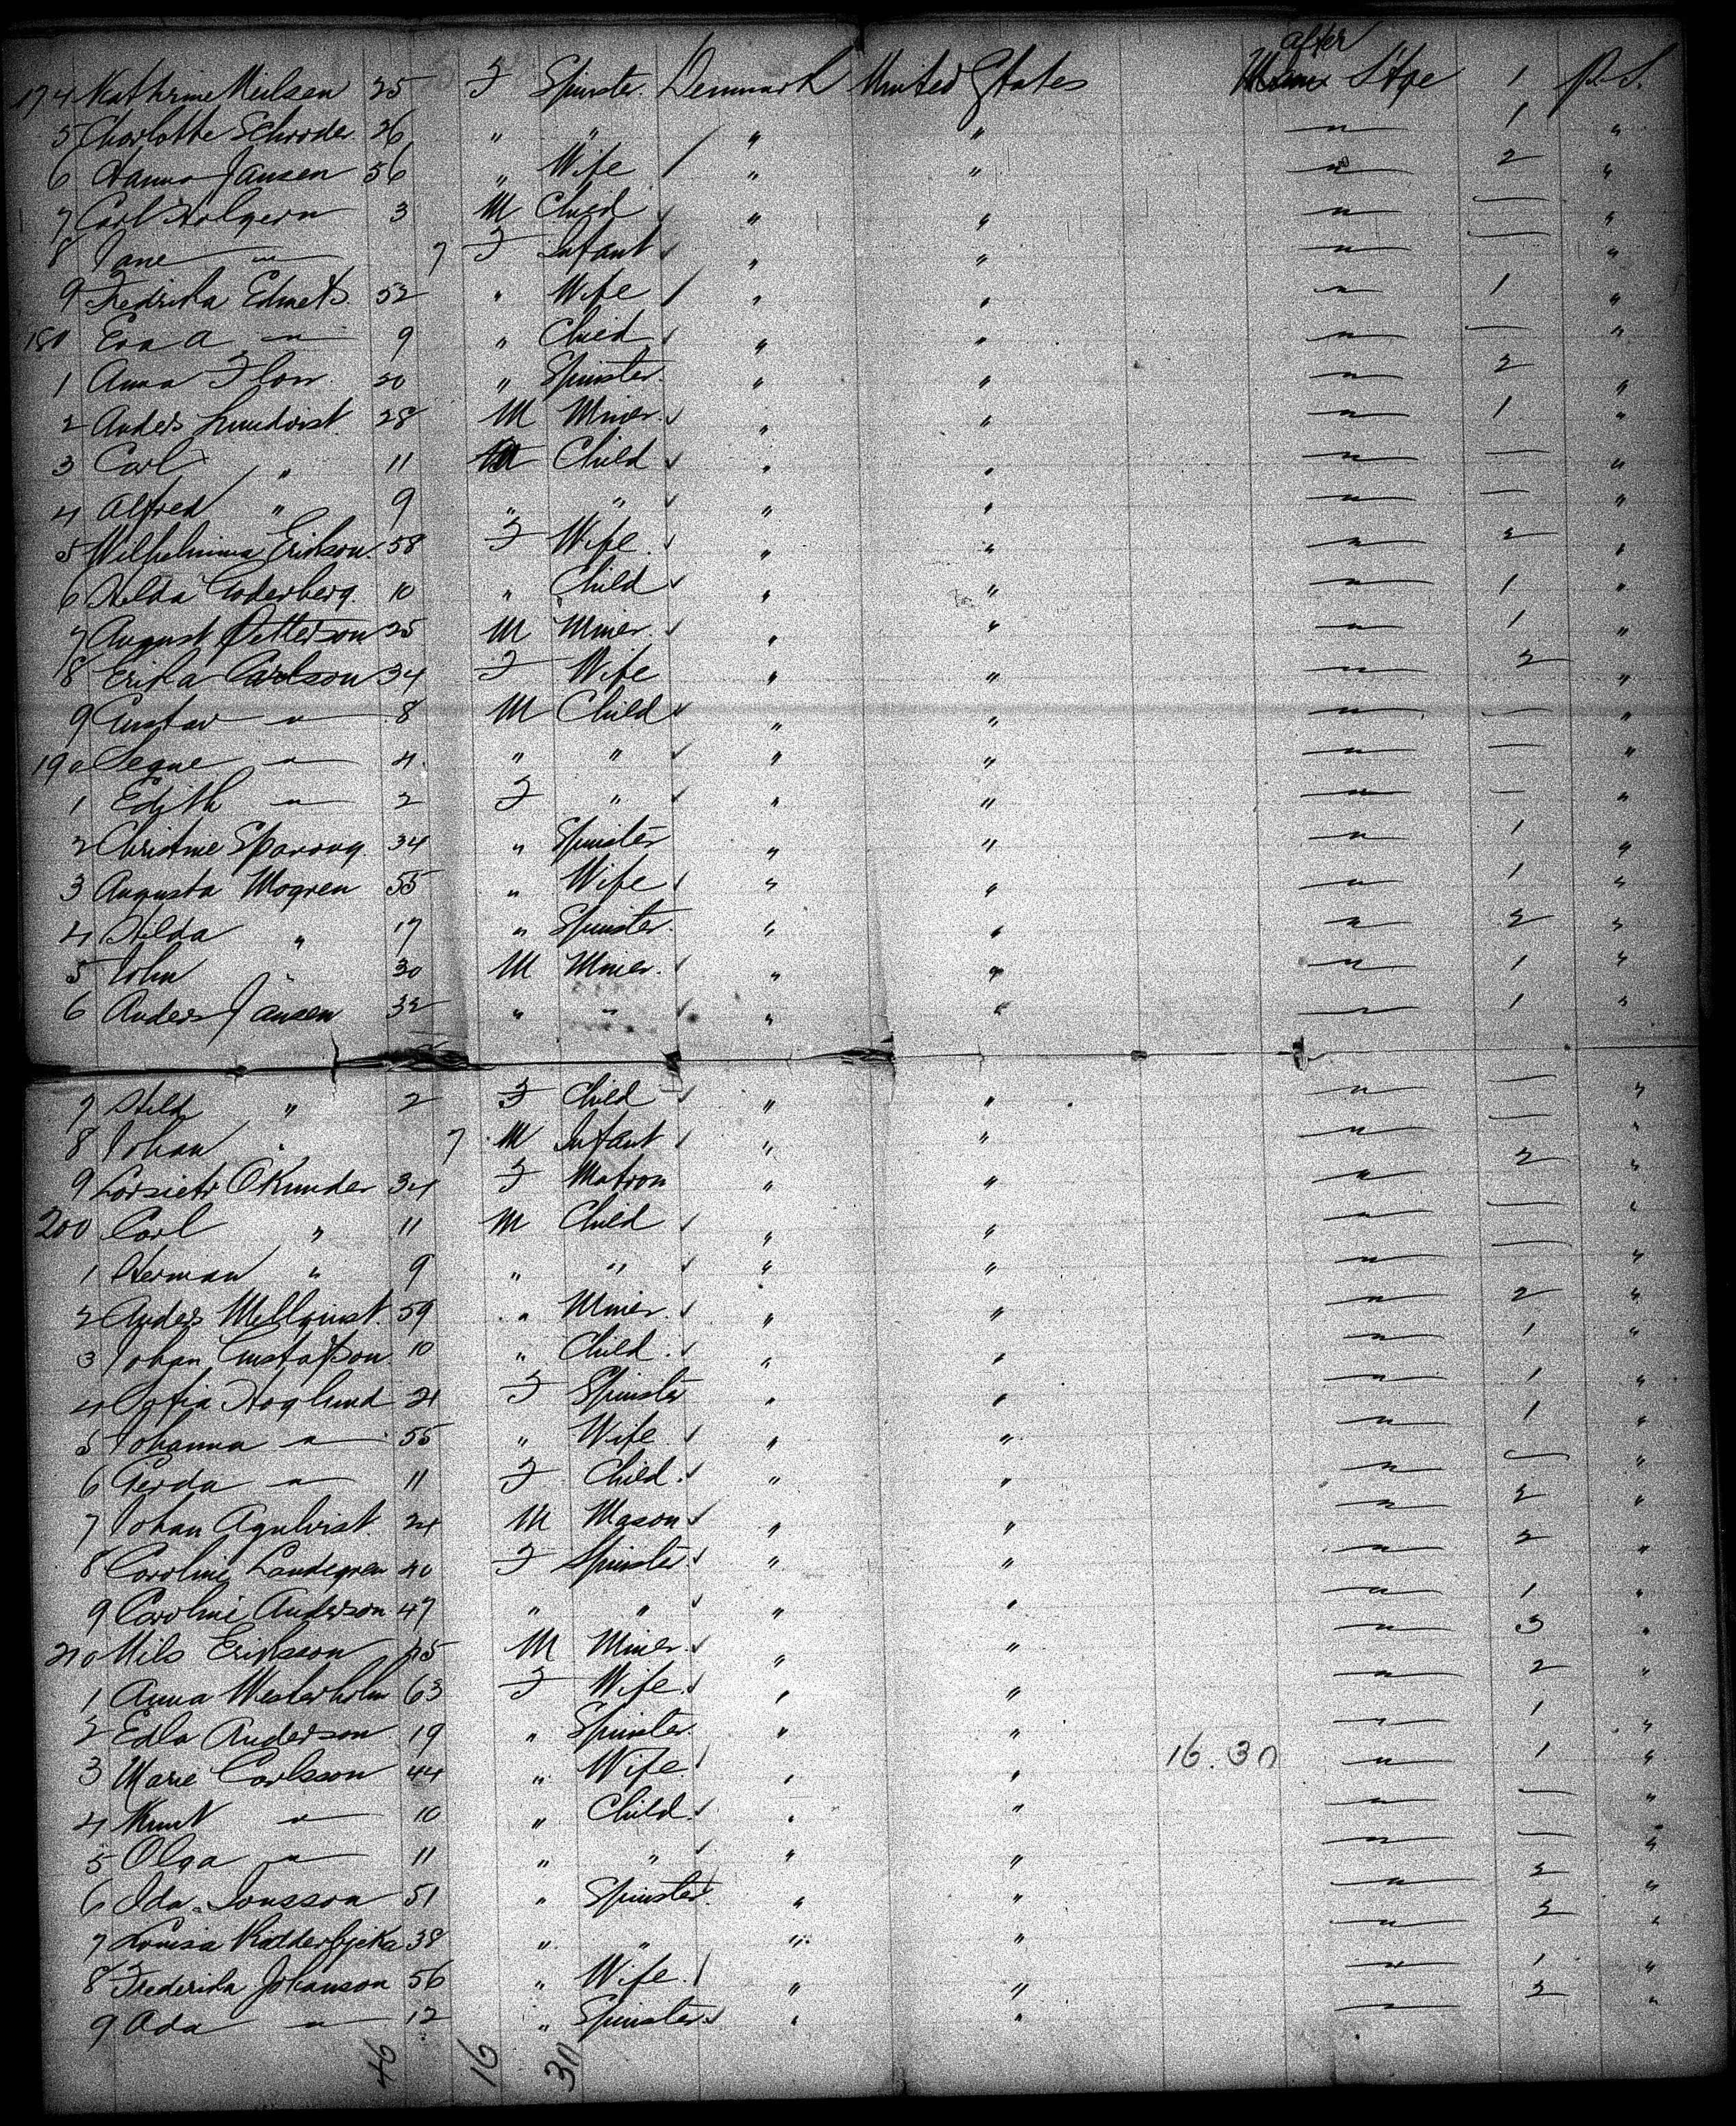 after
174 Kathrine Nielsen 25 F Spinster Denmark United States Stge 1 P. S.
5 Charlotte Schroder 26 " " " " " 1 "
6 Hanna Jansen 56 " Wife " " " 2 "
7 Carl Holgern 3 M Child " " " — "
8 Jane " 7 F Infant " " " — "
9 Fredrika Edmets 52 " Wife " " " 1 "
180 Eva A " 9 " Child " " " — "
1 Anna Flow 20 " Spinster " " " 2 "
2 Anders Lundvist 28 M Miner " " " 1 "
3 Carl " 11 M Child " " " — "
4 Alfred " 9 " " " " " — "
5 Wilhelmina Erikson 58 F Wife " " " 2 "
6 Hilda Soderberg 10 " Child " " " 1 "
7 August Petterson 25 M Miner " " " 1 "
8 Erika Carlson 34 F Wife " " " 2 "
9 Gustav " 8 M Child " " " — "
190 Segne " 4 " " " " " — "
1 Edith " 2 F " " " " — "
2 Christine Sparong 34 " Spinster " " " 1 "
3 Augusta Mogren 55 " Wife " " " 1 "
4 Hilda " 17 " Spinster " " " 2 "
5 John " 30 M Miner " " " 1 "
6 Anders Jansen 32 " " " " " 1 "
7 Hild " 2 F Child " " " — "
8 Johan " 7 M Infant " " " — "
9 Okunder 34 F Matron " " " 2 "
200 Carl " 11 M Child " " " — "
1 Herman " 9 " " " " " — "
2 Anders Mellquist 59 " Miner " " " 2 "
3 Johan Gustafson 10 " Child " " " 1 "
4 Sofia Hoglund 21 F Spinster " " " 1 "
5 Johanna " 55 " Wife " " " 1 "
6 Gerda " 11 F Child " " " — "
7 Johan Agulvist 24 M Mason " " " 2 "
8 Caroline Landegren 40 F Spinster " " " 2 "
9 Caroline Anderson 47 " " " " " 1 "
210 Nils Eriksson 45 M Miner " " " 3 "
1 Anna Westerholm 63 F Wife " " " 2 "
2 Edla Anderson 19 " Spinster " " " 1 "
3 Marie Carlsson 44 " Wife " " 16.30 " 1 "
4 Knut " 10 " Child " " " — "
5 Olga " 11 " " " " " — "
6 Ida Jonsson 51 " Spinster " " " 2 "
7 Lovisa 38 " " " " " 2 "
8 Frederika Johanson 56 " Wife " " " 1 "
9 Ada " 12 " Spinster " " " 2 "
46 16 30